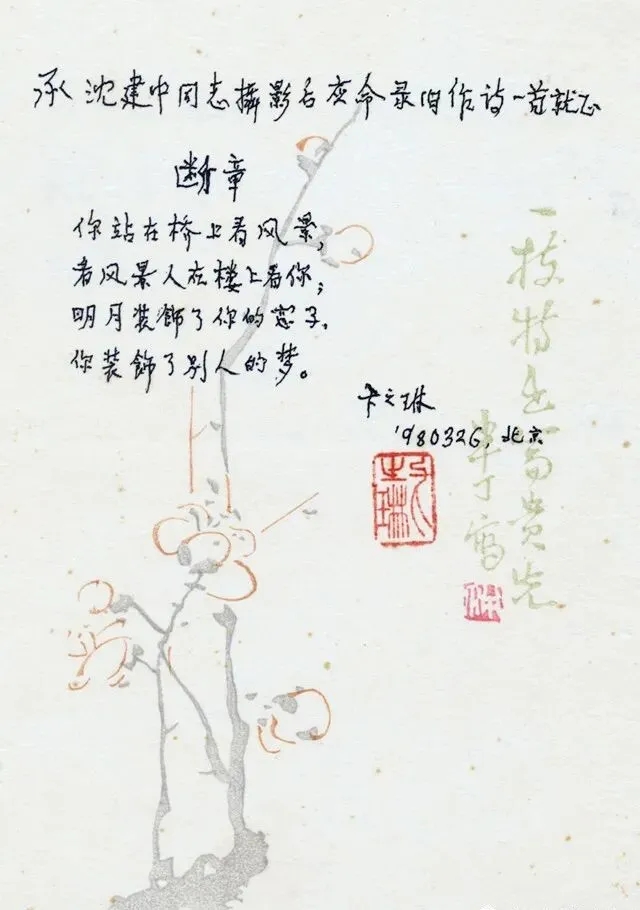 承沈建中同志攝影后应命录旧作诗一首就正
断章
你站在桥上看风景，
看风景人在楼上看你；
明月装饰了你的窗子，
你装饰了别人的梦。
卞之琳
'980326，北京
卞之琳
一枝特出富贵先
半丁写